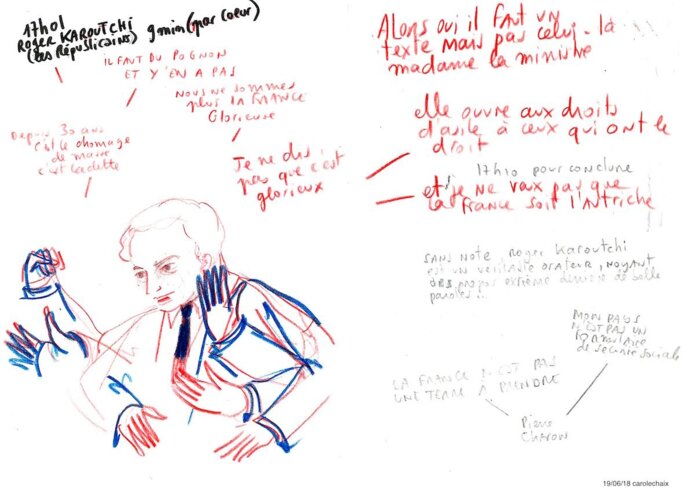 17h01
ROGER KAROUTCHI 9min (par coeur)
(Les Républicains)
IL FAUT DU POGNON
ET Y'EN A PAS
NOUS NE SOMMES
plus LA FRANCE
Glorieuse
Depuis 30 ans
c'est le chomage
de masse
c'est la dette
Je ne dis
pas que c'est
glorieux
Alors oui il faut un
texte mais pas celui-là
madame la ministre
elle ouvre aux droits
d'asile à ceux qui ont le
droit
17h10 pour conclure
et je ne veux pas que
la France soit l'Autriche
SANS NOTE, Roger Karoutchi
est un véritable orateur, noyant
des propos extrême derrière de belle
paroles!
MON PAYS
N'EST PAS UN
FORMULAIRE
de sécurité sociale
LA FRANCE N'EST PAS
UNE TERRE À PRENDRE
Pierre
Charon
19/06/18 carolechaix